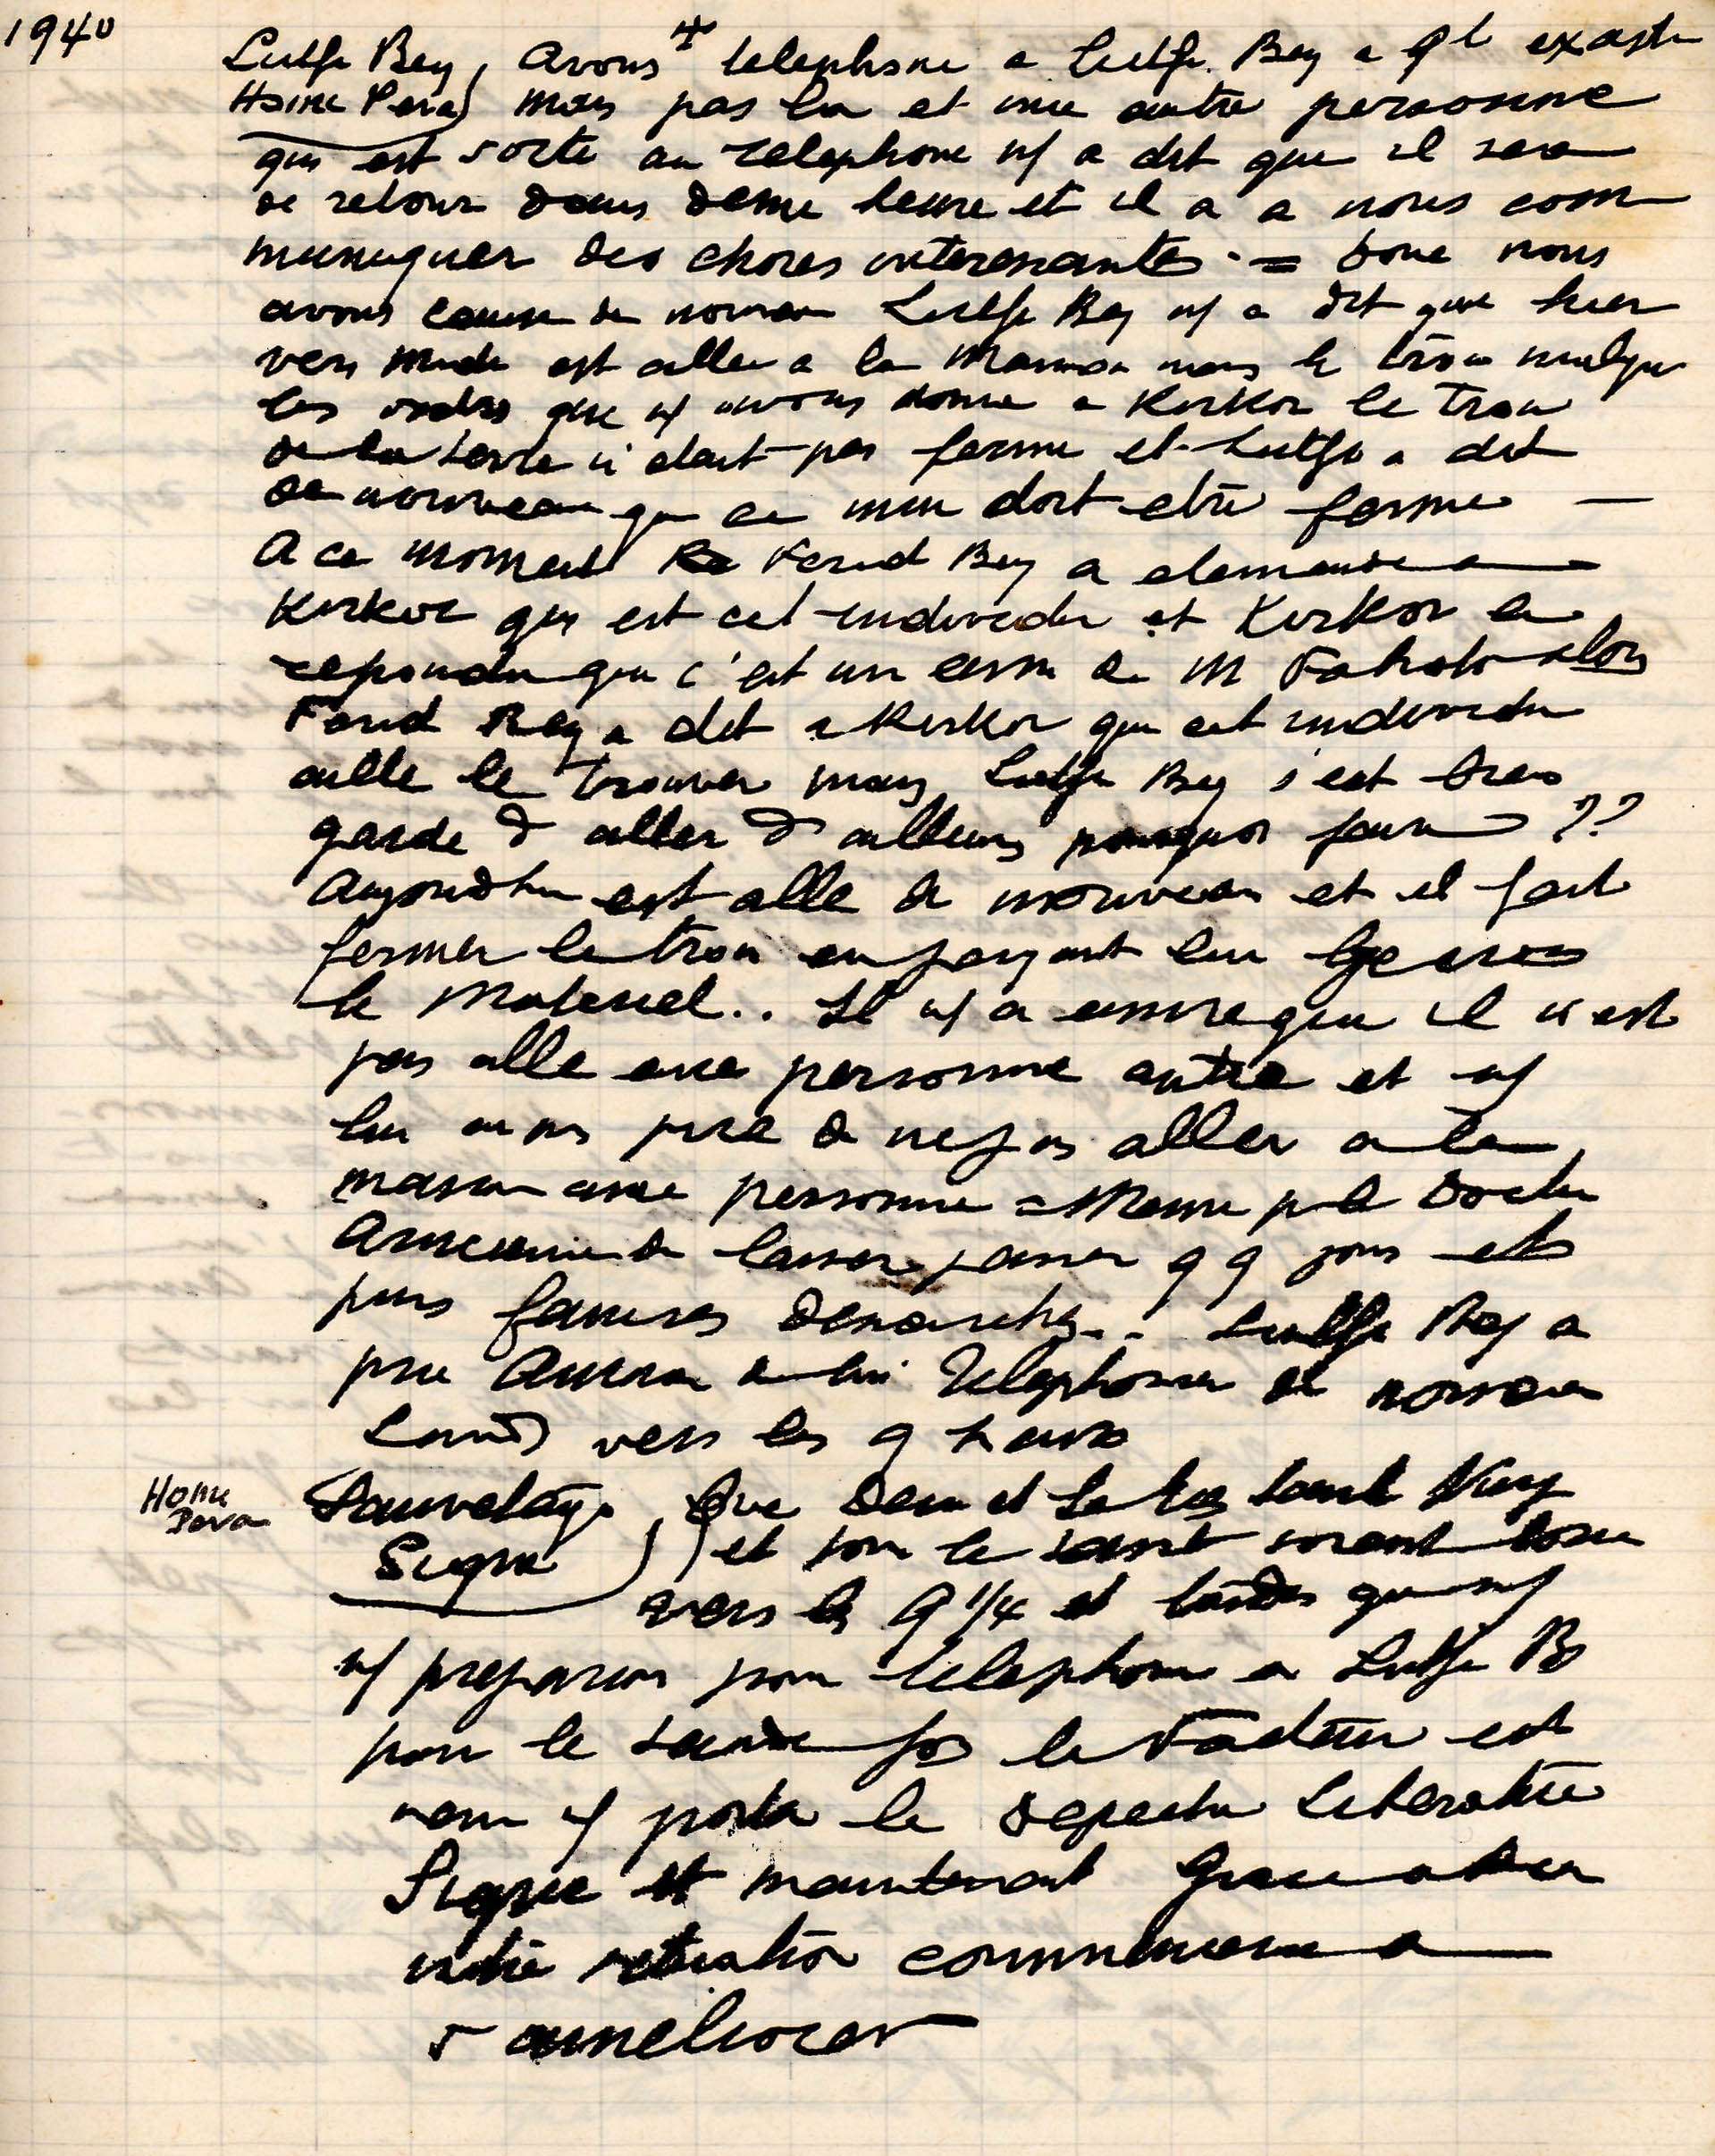 1940
Lutfi Bey, Avons telephone a Lutfi Bey a 9h exacte
Home Pera) mais pas la et une autre personne
qui est sorte au telephone n/ a dit que il sera
de retour dans demi heure et il a a nous com
muniquer des choses interessantes . = donc nous
avons cause de nouveau Lutfi Bey n/ a dit que hier
vers Midi est alle a la Maison mais le trou malgre
les ordres que n/ avons donne a Kirkor le trou
de la n'etait pas ferme et Lutfi a dit
de nouveau que ce mur doit etre ferme —
A ce moment Ferid Bey a demande a
Kirkor qui est cet individu et Kirkor a
repondu que c'est un ami de M alors
Ferid Bey a dit a Kirkor que cet individu
aille le trouver mais Lutfi Bey s'est bien
garde d aller d ailleurs pourquoi faire ??
Aujourdhui est alle de nouveau et il fait
fermer le trou en payant
le Materiel.. Il n/ a que il n est
pas alle avec personne autre et n/
lui avons prie de ne pas aller a la
maison avec personne = Meme p le Docteur
de laisser passer q q jours et
puis faire ses demarches.. Lutfi Bey a
prie de lui telephoner de nouveau
Lundi vers les 9 heures
Home Pera
Sauvetage Que Dieu et
Signe ) ) et tous le saint soient
vers les 9 1/4 et tandis que n/
n/ preparions pour telephone a Lutfi B
pour le fois le Facteur est
venu n/ porter le depeche Liberatrice
Signe et maintenant Grace a Dieu
notre situation commencera a
s ameliorer